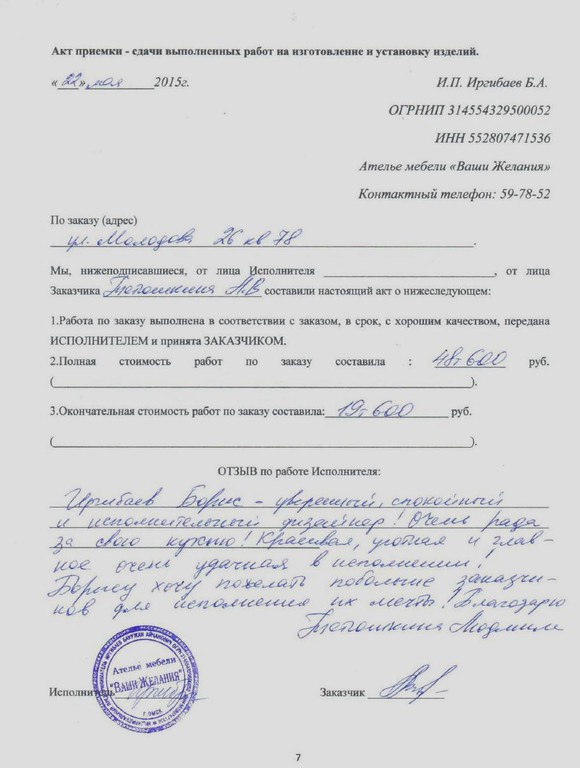 Акт приемки - сдачи выполненных работ на изготовление и установку изделий.
«22» мая 2015г.
И.П. Иргибаев Б.А.
ОГРНИП 314554329500052
ИНН 552807471536
Ателье мебели «Ваши Желания»
Контактный телефон: 59-78-52
По заказу (адрес)
ул. Молодова 26 кв 78.
Мы, нижеподписавшиеся, от лица Исполнителя , от лица
Заказчика Тетошкина Л.В составили настоящий акт о нижеследующем:
1.Работа по заказу выполнена в соответствии с заказом, в срок, с хорошим качеством, передана
ИСПОЛНИТЕЛЕМ и принята ЗАКАЗЧИКОМ.
2.Полная стоимость работ по заказу составила : 48т600 руб.
( ).
3.Окончательная стоимость работ по заказу составила: 19т600 руб.
( ).
ОТЗЫВ по работе Исполнителя:
Иргибаев Борис - уверенный, спокойный
и исполнительный дизайнер! Очень рада
за свою кухню! Красивая, уютная и глав-
ное очень удачная в исполнении!
Борису хочу пожелать побольше заказчи-
ков для исполнения их мечты! Благодарю
Тетошкина Людмила
Ателье мебели
"Ваши Желания"
г. Омск
Исполнитель
Заказчик
7